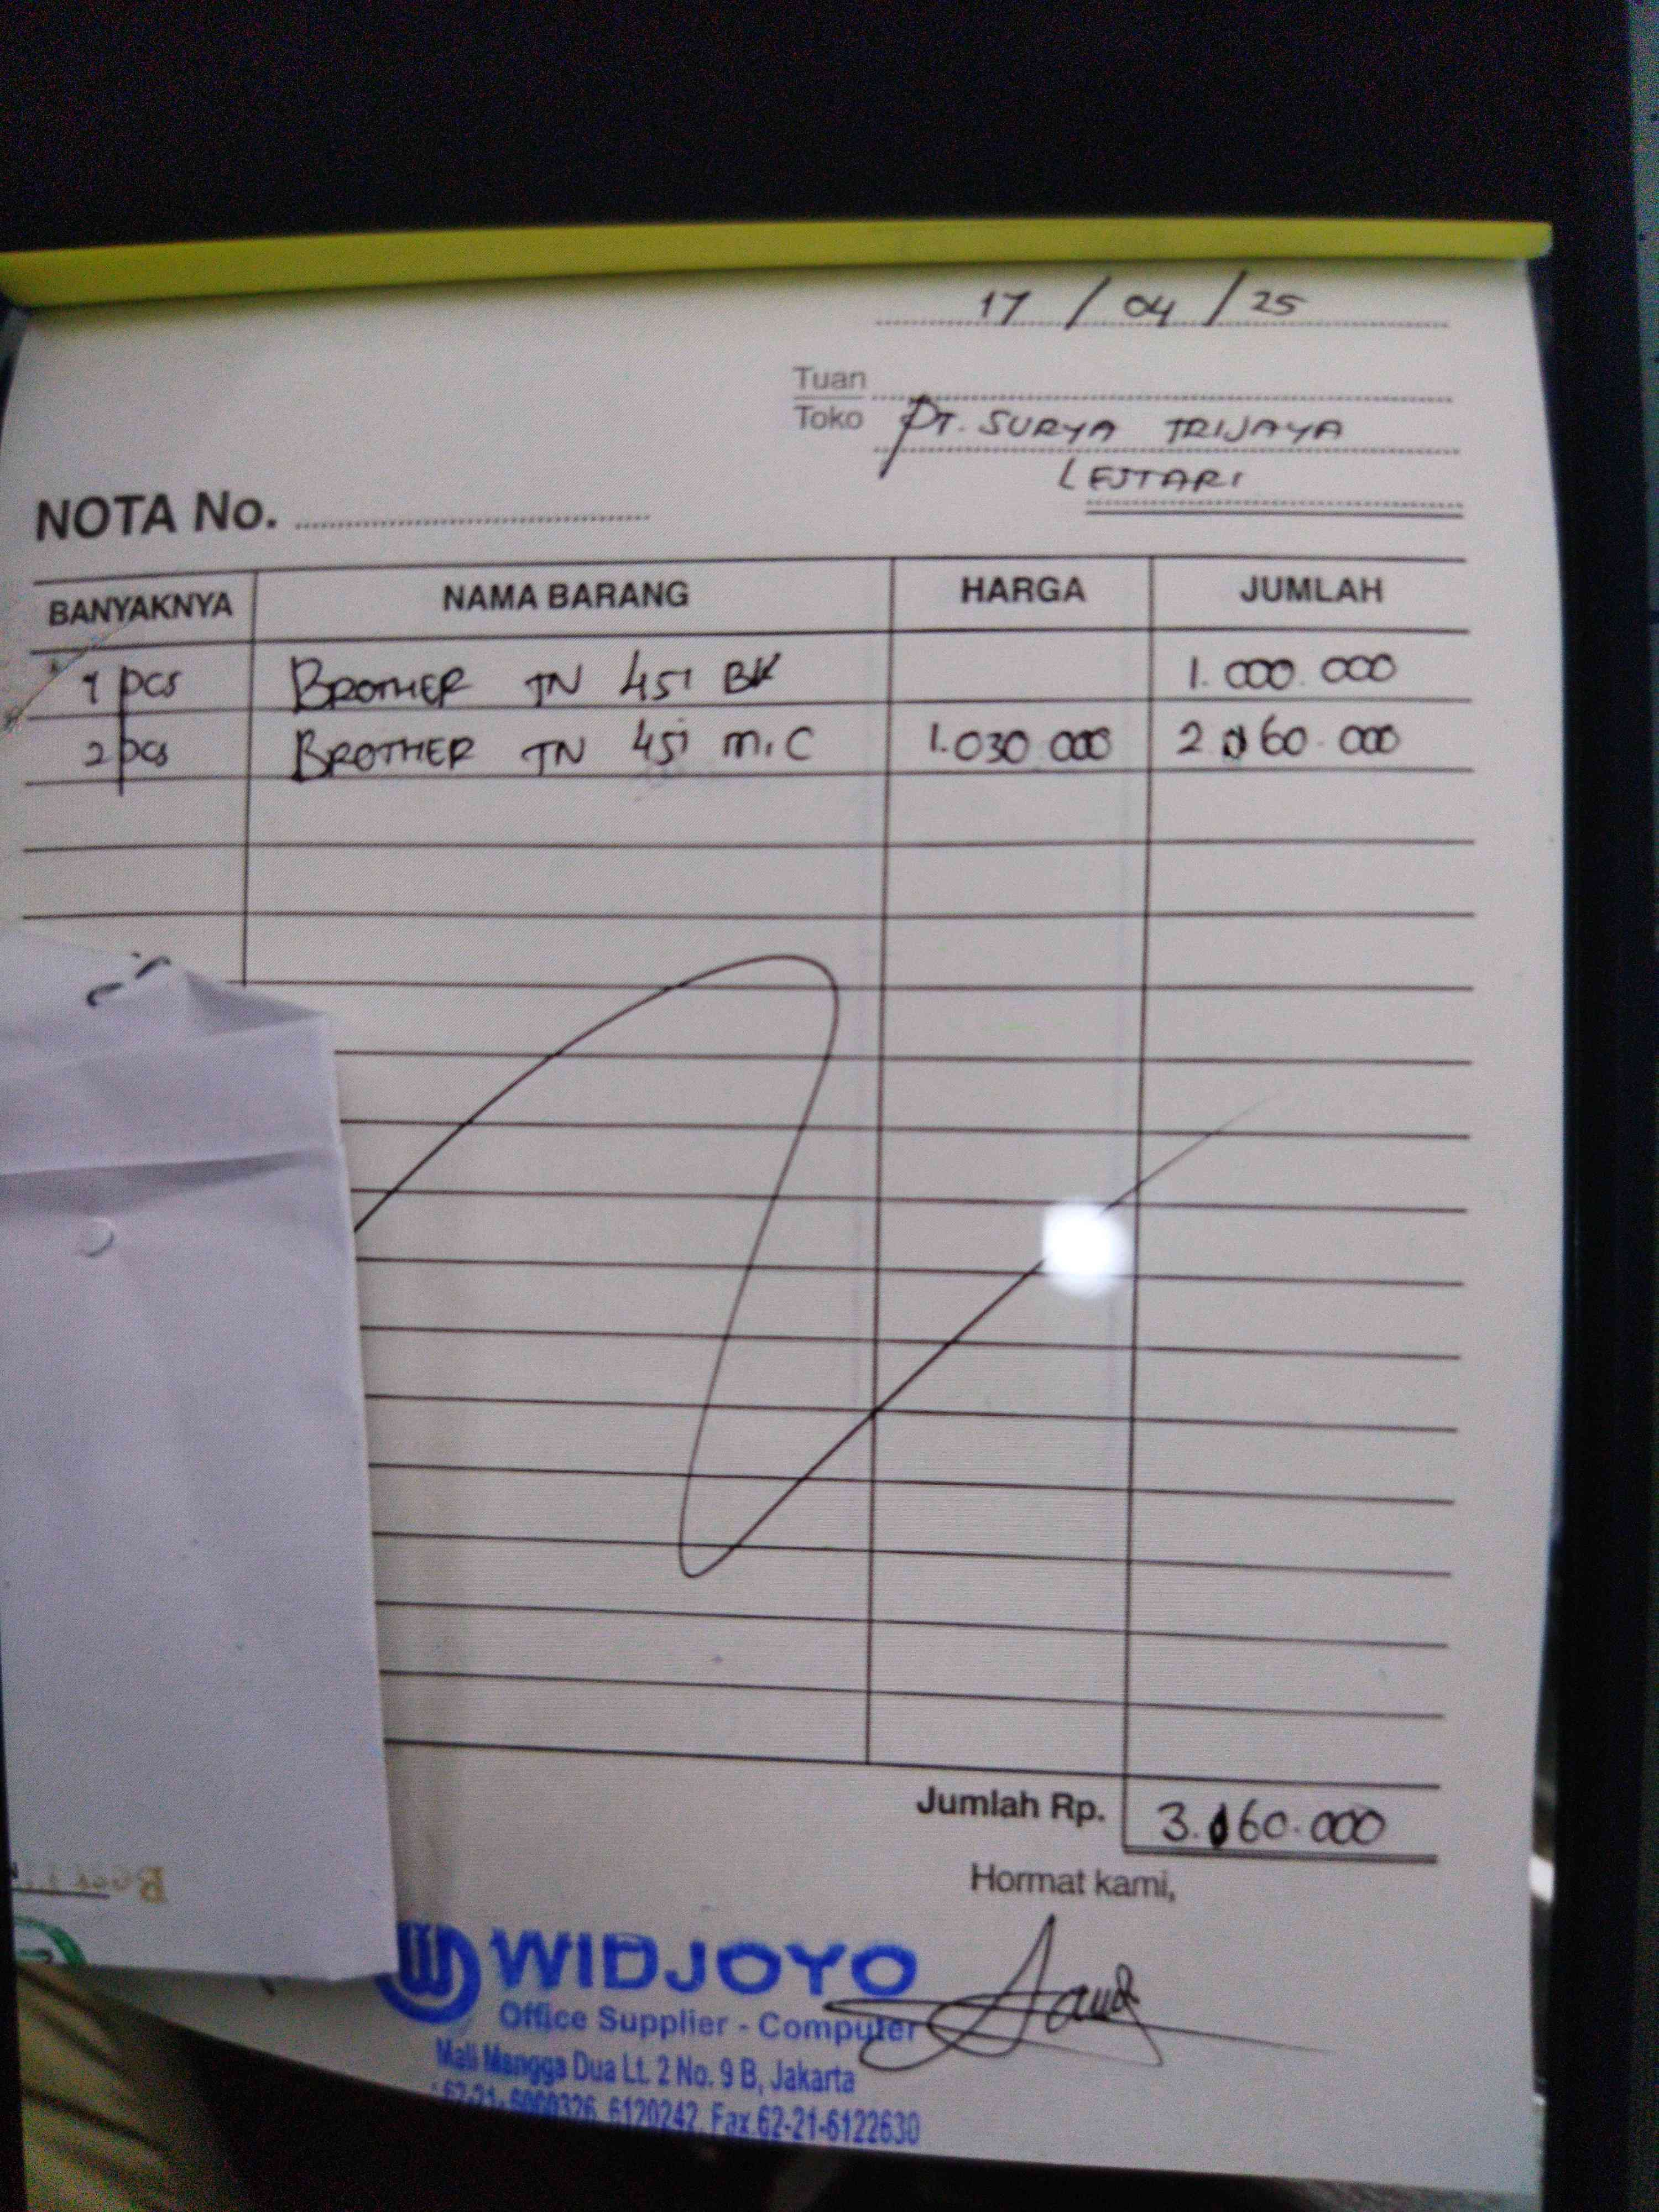 17 / 04 / 25
Tuan
Toko PT. SURYA TRIJAYA
LESTARI
NOTA No.
BANYAKNYA NAMA BARANG HARGA JUMLAH
1 pcs BROTHER TN 451 BK 1.000.000
2 pcs BROTHER TN 451 M,C 1.030.000 2.060.000
Jumlah Rp. 3.060.000
Hormat kami,
WIDJOYO
Office Supplier - Computer
Mall Mangga Dua Lt. 2 No. 9 B, Jakarta
62-21-6000326, 6120242, Fax.62-21-6122630